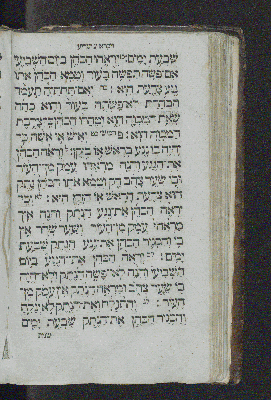 שבעת ימים: וראהו הכהן ביום השביעי
אם־פשה תפשה בעור וטמא הכהן אתו
נגע צרעת הוא: ואם־תחתיה תעמד
הבהרת לא־פשתה בעור והוא כהה
שאת המכוה הוא וטהרו הכהן כי־צרבת
המכוה הוא: ואיש או אשה כי־
יהיה בו נגע בראש או בזקן: וראה הכהן
את־הנגע והנה מראהו עמק מן־העור
ובו שער צהב דק וטמא אתו הכהן נתק
הוא צרעת הראש או הזקן הוא: וכי־
יראה הכהן את־נגע הנתק והנה אין
מראהו עמק מן־העור ושער שחר אין
בו והסגיר הכהן את־נגע הנתק שבעת
ימים: וראה הכהן את־הנגע ביום
השביעי והנה לא־פשה הנתק ולא־היה
בו שער צהב ומראה הנתק אין עמק מן־
העור: והתגלח ואת־הנתק לא יגלח
והסגיר הכהן את־הנתק שבעת ימים
שנית